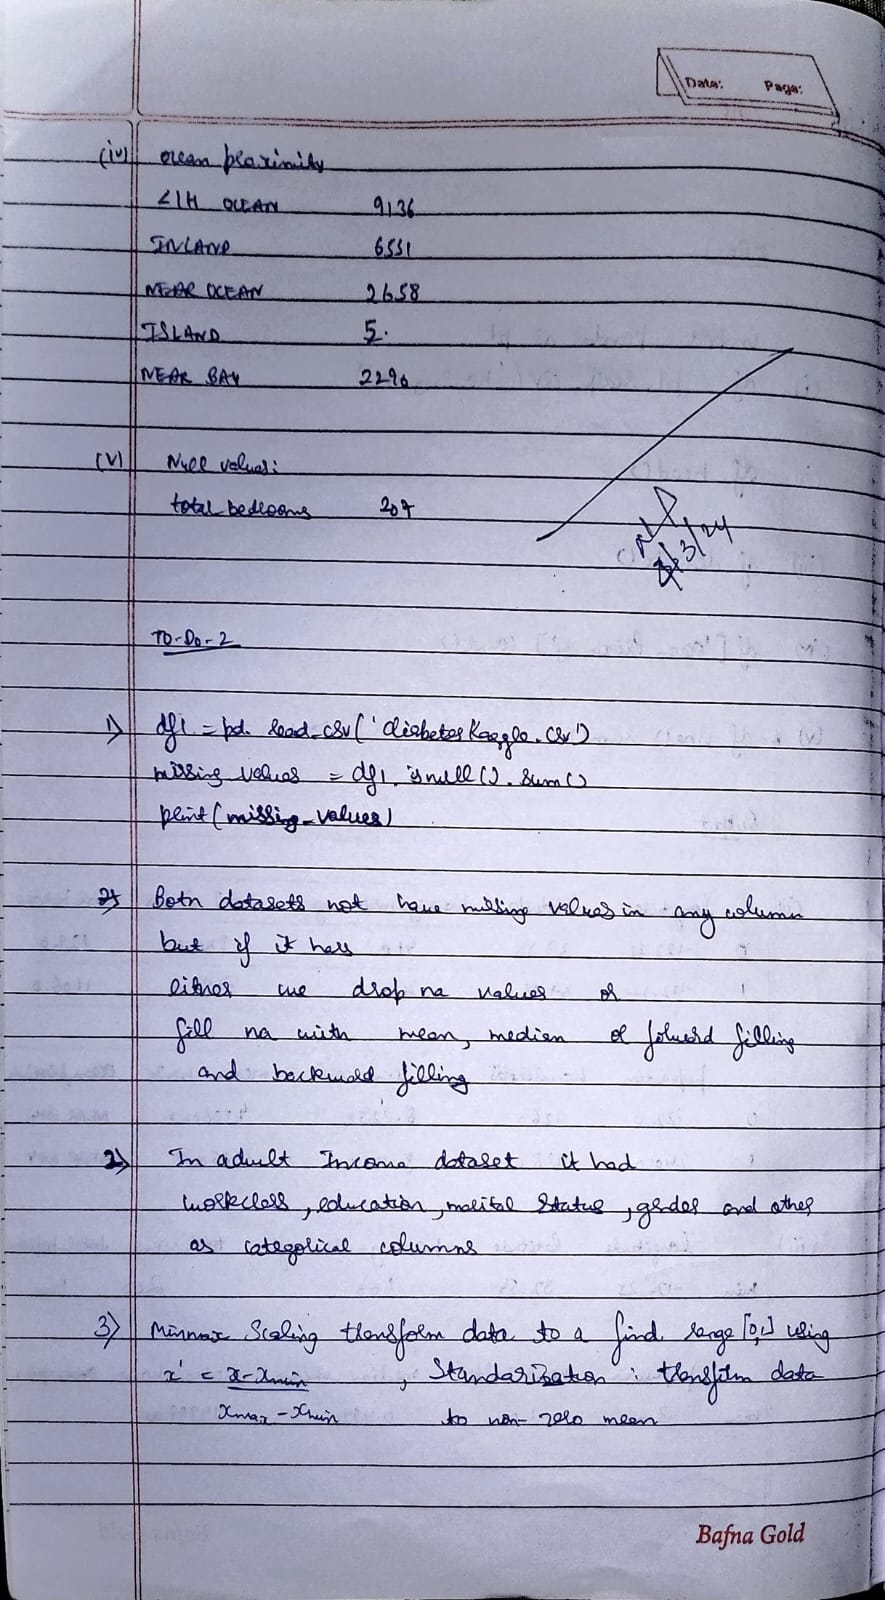 Date: Page:
(iv) ocean proximity
<1H OCEAN 9136
INLAND 6551
NEAR OCEAN 2658
ISLAND 5.
NEAR BAY 2290
(V) Null values:
total bedrooms 207
3/24
TO-DO-2
1) df1 = pd. read_csv('diabetes Kaggle.csv')
missing values = df1. isnull(). sum()
print(missing_values)
Both datasets not have missing values in any column
but if it has
either we drop na values or
fill na with mean, median or forward filling
and backward filling
2) In adult Income dataset it had
workclass, education, marital status, gender and other
as categorical columns
3) Minmax Scaling transform data to a find range [0,1] using
x' = x-xmin , Standarization : transform data
xmax - xmin to non-zero mean
Bafna Gold